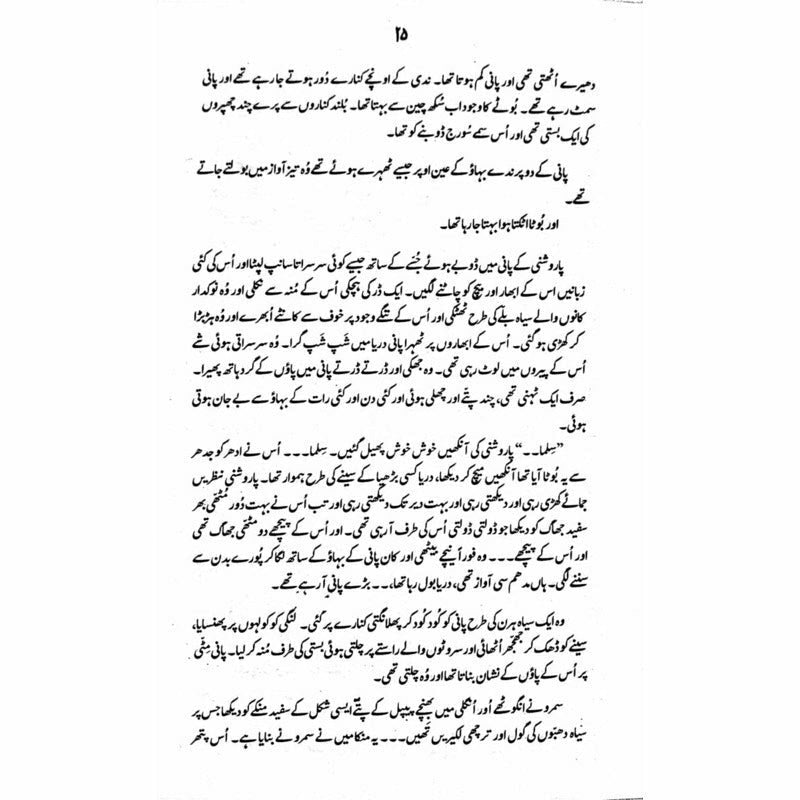 ۲۵
دھیرے اُٹھتی تھی اور پانی کم ہوتا تھا۔ ندی کے اونچے کنارے دُور ہوتے جا رہے تھے اور پانی
سمٹ رہے تھے۔ بُوٹے کا وجود اب سُکھ چین سے بہتا تھا۔ بُلند کناروں سے پرے چند چھپروں
کی ایک بستی تھی اور اُس سمے سُورج ڈوبنے کو تھا۔
پانی کے دو پرندے بہاؤ کے عین اوپر جیسے ٹھہرے ہوئے تھے وُہ تیز آواز میں بولتے جاتے
تھے۔
اور بُوٹا اٹکتا ہوا بہتا جا رہا تھا۔
پاروشنی کے پانی میں ڈوبے ہوئے جُثے کے ساتھ جیسے کوئی سرسراتا سانپ لپٹا اور اُس کی کئی
زبانیں اس کے ابھار اور بیچ کو چاٹنے لگیں۔ ایک ڈر کی ہچکی اُس کے مُنہ سے نکلی اور وُہ نوکدار
کانوں والے سیاہ بلے کی طرح ٹھٹکی اور اُس کے ننگے وجود پر خوف سے کانٹے اُبھرے اور وُہ ہڑبڑا
کر کھڑی ہو گئی۔ اُس کے ابھاروں پر ٹھہرا پانی دریا میں شَپ شَپ گرا۔ وُہ سرسراتی ہوئی شے
اُس کے پیروں میں لوٹ رہی تھی۔ وہ جھکی اور ڈرتے ڈرتے پانی میں پاؤں کے گرد ہاتھ پھیرا۔
صرف ایک ٹہنی تھی، چند پتّے اور چھلی ہوئی اور کئی دن اور کئی رات کے بہاؤ سے بے جان ہوتی
ہوئی۔
”سِلما۔۔“ پاروشنی کی آنکھیں خوش خوش پھیل گئیں۔ سِلما۔۔۔ اُس نے ادھر کو جدھر
سے یہ بُوٹا آیا تھا آنکھیں میچ کر دیکھا، دریا کسی بڑھیا کے سینے کی طرح ہموار تھا۔ پاروشنی نظریں
جمائے کھڑی رہی اور دیکھتی رہی اور بہت دیر تک دیکھتی رہی اور تب اُس نے بہت دُور مُٹھی بھر
سفید جھاگ کو دیکھا جو ڈولتی ڈولتی اُس کی طرف آ رہی تھی۔ اور اُس کے پیچھے دو مٹھی جھاگ تھی
اور اُس کے پیچھے۔۔۔ وہ فوراً نیچے بیٹھی اور کان پانی کے بہاؤ کے ساتھ لگا کر پُورے بدن سے
سننے لگی۔ ہاں مدھم سی آواز تھی، دریا بول رہا تھا،۔۔ بڑے پانی آ رہے تھے۔
وہ ایک سیاہ ہرن کی طرح پانی کو کُود کُود کر پھلانگتی کنارے پر گئی۔ لُنگی کو کولہوں پر پھنسایا،
سینے کو ڈھک کر جھجّھر اُٹھائی اور سروٹوں والے راستے پر چلتی ہوئی بستی کی طرف مُنہ کر لیا۔ پانی مِٹّی
پر اُس کے پاؤں کے نشان بناتا تھا اور وُہ چلتی تھی۔
سمرو نے انگوٹھے اور اُنگلی میں بھنچے پیپل کے پتّے ایسی شکل کے سفید منکے کو دیکھا جس پر
سیاہ دھبّوں کی گول اور ترچھی لکیریں تھیں۔۔۔ یہ منکا میں نے سمرو نے بنایا ہے۔ اُس پتھر